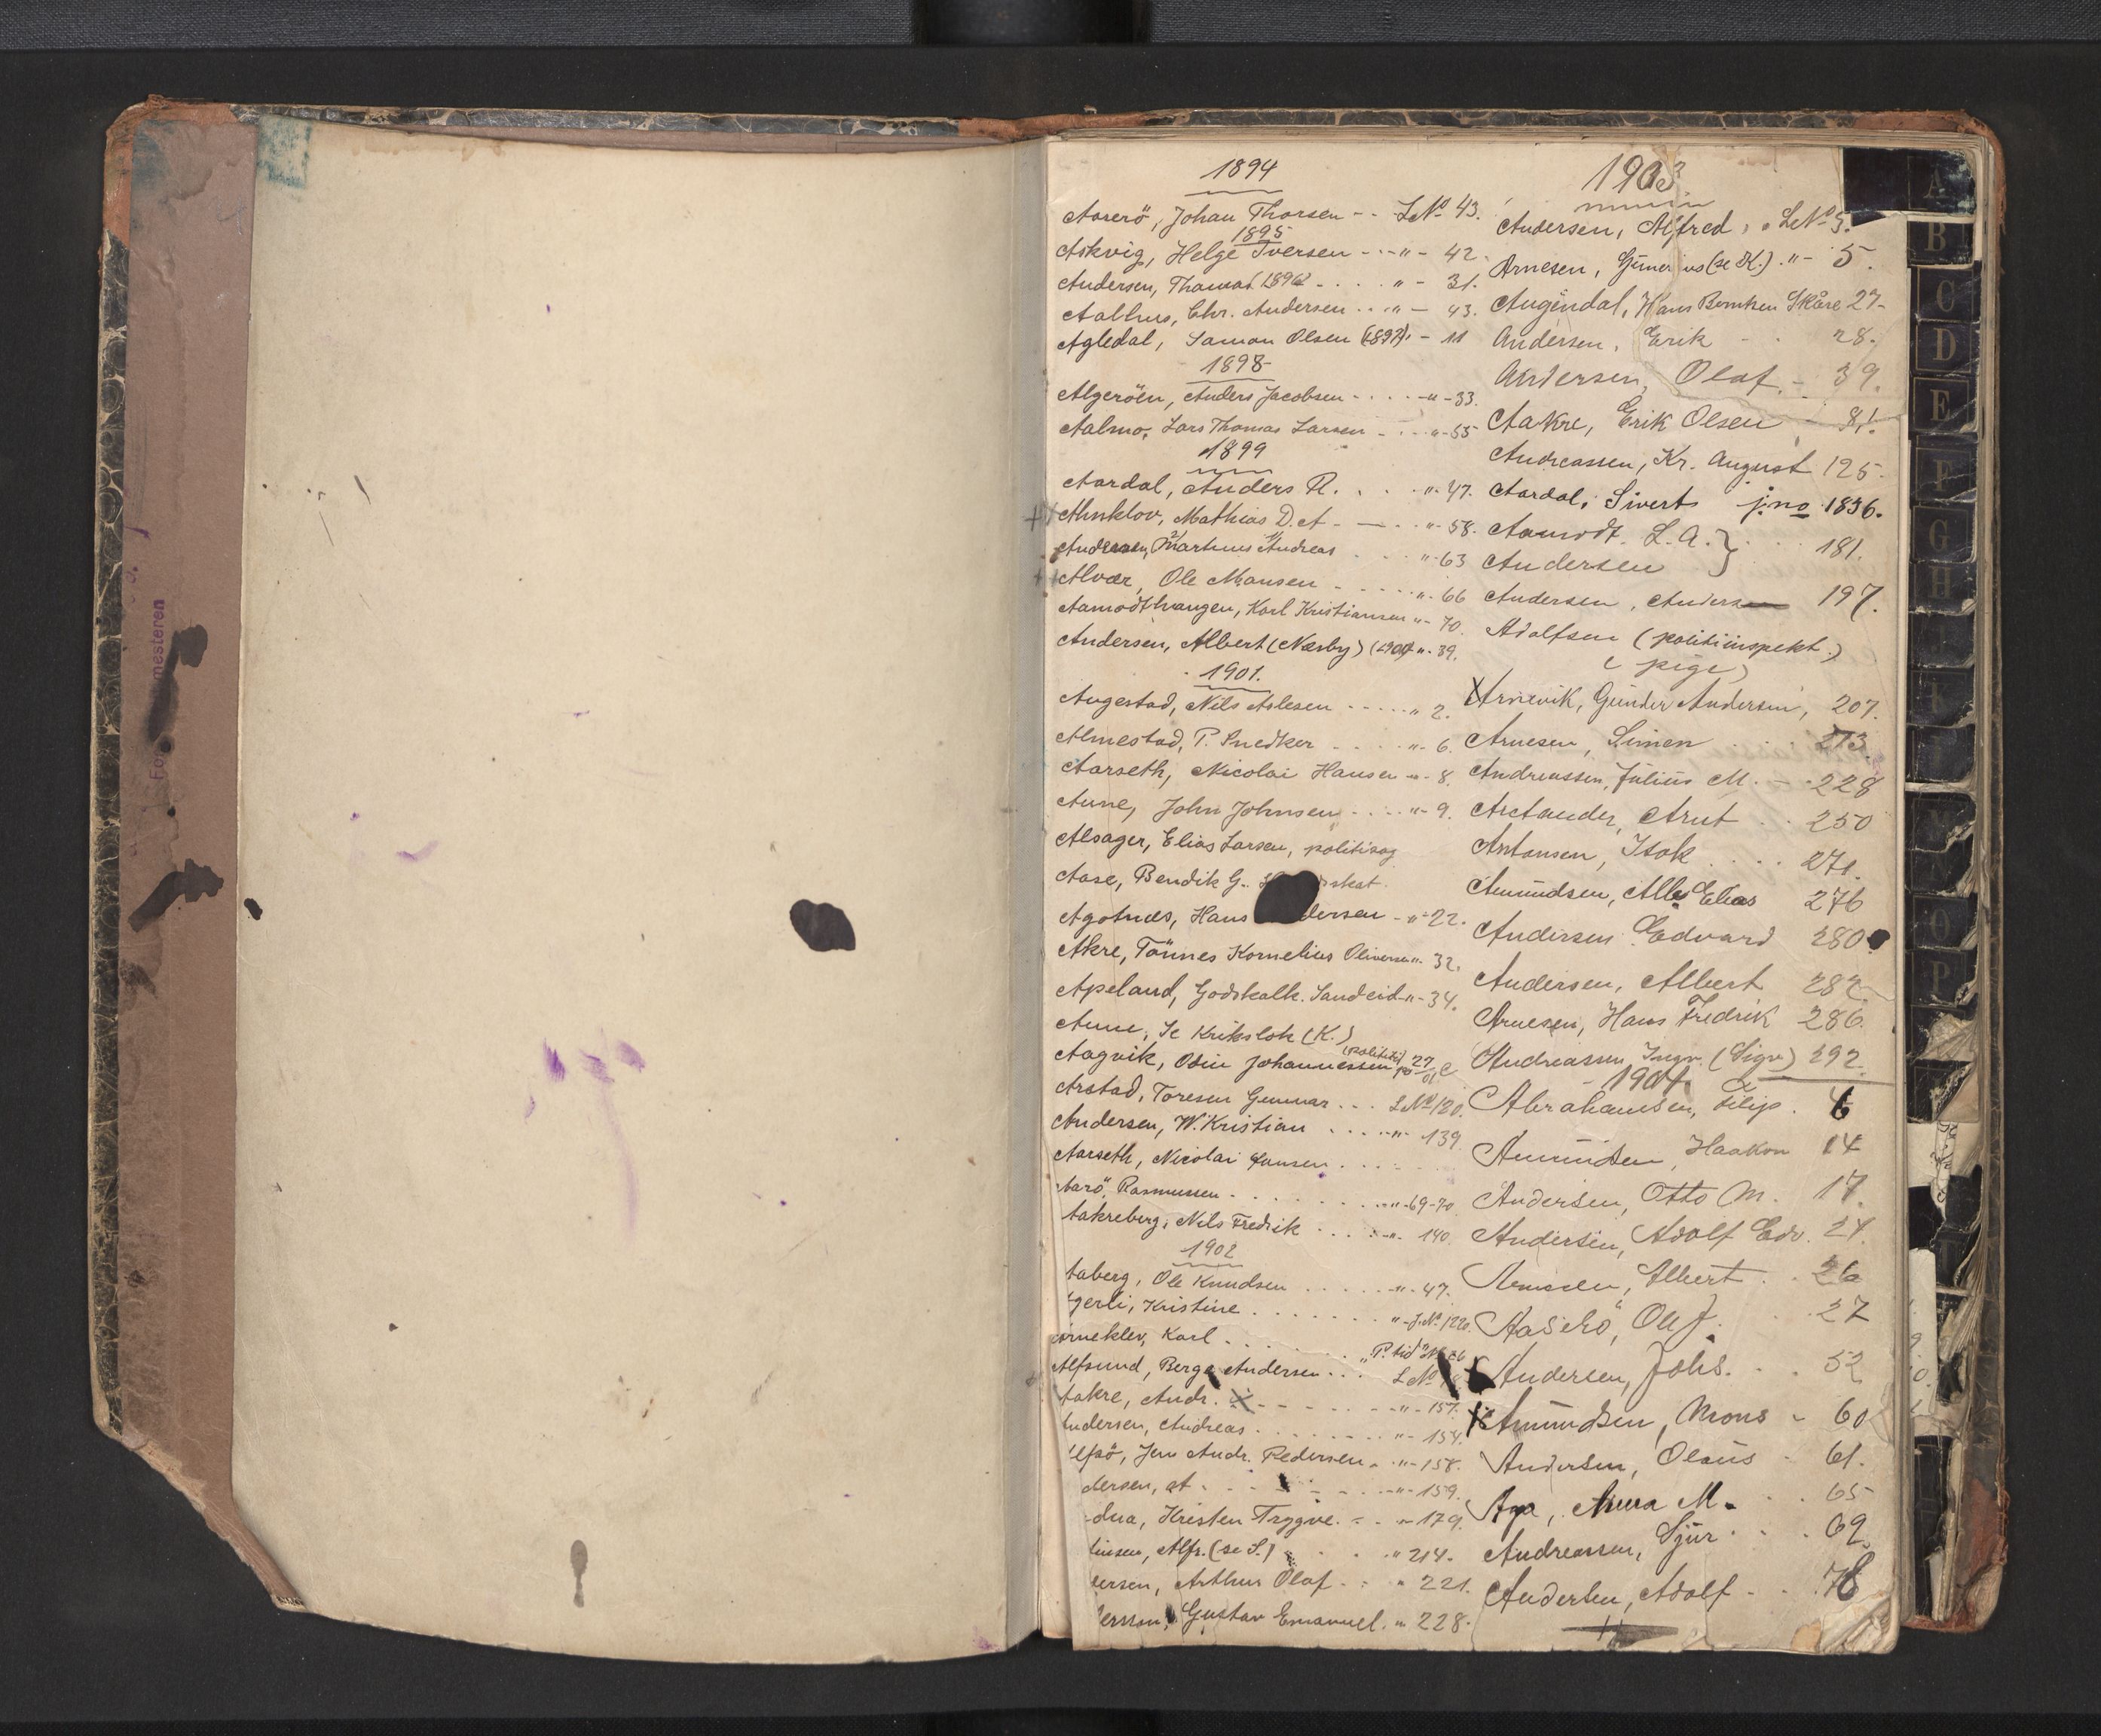 1894
Aarerö, Johan Thorsen - - LNº 43.
1895
Askvig, Helge Iversen - - " - 42.
Andersen, Thomas 1896 - . . . " - 31.
Aalhus, Chr. Andersen . . . " - 43.
Agledal, Samson Olsen (1897) - 11
1898
Algeröen, Anders Jacobsen - . . . - " - 33.
Aalmo, Lars Thomas Larsen - . . . " - 55
1899
Aardal, Anders R. . . . " - 47.
Mathias D. A - — . . " - 58.
Andersen, Martinus Andreas . . . " - 63
Alvær, Ole Monsen - . . . . " - 66
Aamodthaugen, Karl Kristiansen " - 70.
Andersen, Albert (Næsby) (1900) " - 39.
1901.
Augestad, Nils Aslesen - - - - - " 2.
Almestad, P. Snedker . . . . " - 6.
Aarseth, Nicolai Hansen - " - 8.
Aune, John Johnsen - . . . " - 9.
Alsager, Elias Larsen, politisag
Aase, Bendik G..
Agotnes, Hans dersen - " - 22.
Akre, Tönnes Kornelius Oliversen ". 32.
Apeland, Godskalk. Sandeid - " - 34.
Aune, Se Krikslok (K.)
Aagvik, Odin Johannessen (politik) 27
Arstad, Toresen Gunnar . . . LNº 120.
Andersen, W. Kristian . . . . - " - 139
Aarseth, Nicolai Hansen . . . . .
Aarö, Rasmussen - . . . . . . " - 69-70
Aakreberg, Nils Fredrik . . . . - " - 140.
1902
Aaberg, Ole Knudsen . . . . . - " - 47.
gerli, Kristine . . . . . . . " - J.Nº 1220.
Karl . . . . . . . " P. tid
Alfsund, Berge Andersen . . . LNº
Aakre, Andr. X - - - - - - - " - 157.
Andersen, Andreas . . . . . . . " - 154.
Jens Andr. Pedersen - . " - 158.
dersen, at . . . . - - - . - " - 159.
dna, Kristen Trygve. - . . " - 179.
tinsen, Alfr. (se S.) . . . " 214.
ersen, Arthur Olaf . . . " 221.
ersson, Gustav Emanuel. " 228.
1903
Andersen, Alfred, " LNº 3.
Arnesen, Gunerius (se K.) . " - 5.
Augendal, Hans Bernhen Skåre 27-
Andersen, Erik - . 28.
Andersen, Olaf. - 39.
Aakre, Erik Olsen - 81.
Andreassen, Kr. August 125.
Aardal, Siverts j.no 1836.
Aamodt. L. A. }
Andersen } . . . 181.
Andersen, Anders 197.
Adolfsen (politiinspekt.)
( pige )
X Arnevik, Gunder Andersen, 207.
Arnesen, Simen . . . 213.
Andreassen, Julius M. - - 228
Arctander, Arnt . . 250
Antonsen, Isak . . . . 271.
Amundsen, Elias 276
Andersen Edvard 280
Andersen, Albert 282
Arnesen, Hans Fredrik 286.
Andreassen, Ingv. (Sigv) 292.
1904
Abrahamsen, Filip . 6
Amundsen, Haakon 14
Andersen, Otto M. 17.
Andersen, Adolf Edv. 24.
Arnesen, Albert . . 26
Aaserö, Oluf. . . 27
Andersen, Johs. . . 52
X Amundsen, Mons - 60
Andersen, Olaus - 61.
Aga, Anna M. . . 65
Andreassen, Sjur . . . 69.
Andersen, Adolf - . . 78
A
B
C
D
E
F
G
H
O
P